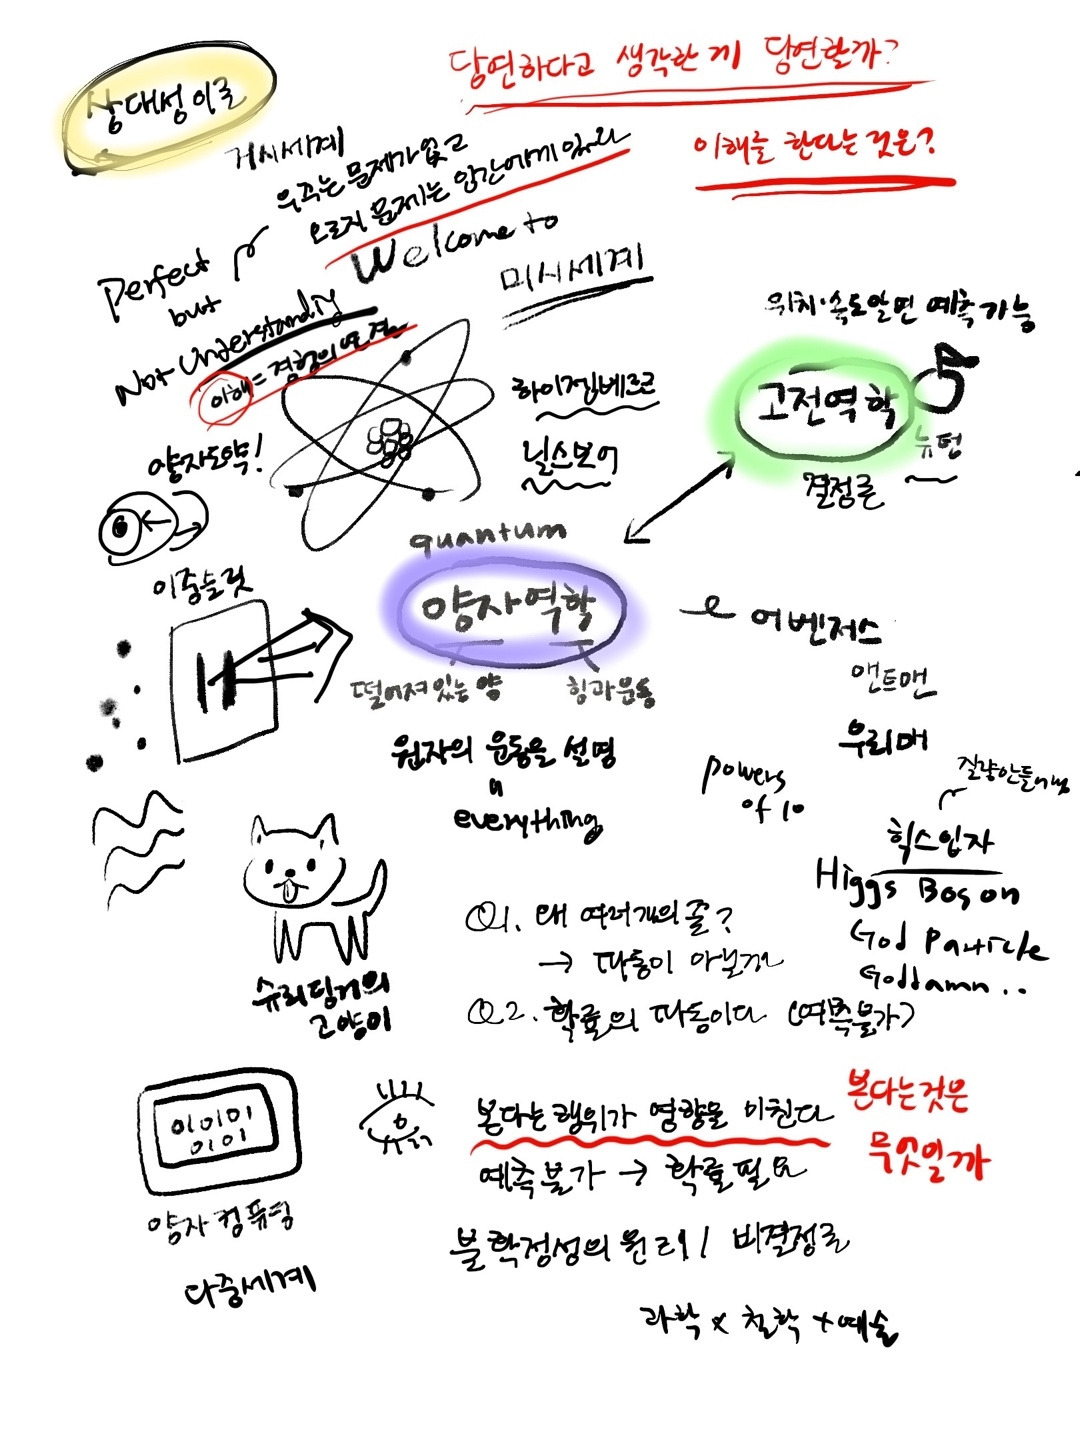 당연하다고 생각한 게 당연할까?
상대성이론
이해를 한다는 것은?
거시세계
우주는 문제가 없고
오로지 문제는 인간에게 있다
Perfect
but
Not Understandig
이해 = 경험의 연결
Welcome to
미시세계
위치·속도 알면 예측 가능
고전역학
뉴턴
결정론
하이젠베르크
닐스보어
양자도약!
이중슬릿
quantum
양자역학
떨어져 있는 양
힘과 운동
원자의 운동을 설명
"
everything
어벤저스
앤트맨
우리매
powers
of 10
질량 만들기
힉스입자
Higgs Boson
God Particle
Goddamn..
슈뢰딩거의
고양이
Q1. 왜 여러개의 줄?
→ 파동이 아닐까
Q2. 확률의 파동이다 (예측불가)
010101
0101
양자컴퓨팅
다중세계
본다는 행위가 영향을 미친다
본다는 것은
무엇일까
예측불가 → 확률필요
불확정성의 원리 / 비결정론
과학 x 철학 + 예술